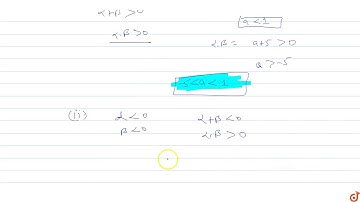 α+β > 0
a < 1
α.β > 0
α.β = a+5 > 0
a > -5
-5 < a < 1
(ii) α < 0 α+β < 0
β < 0 α.β > 0